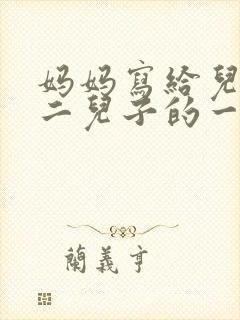 妈妈寫給兒
二兒子的一
蘭義亨